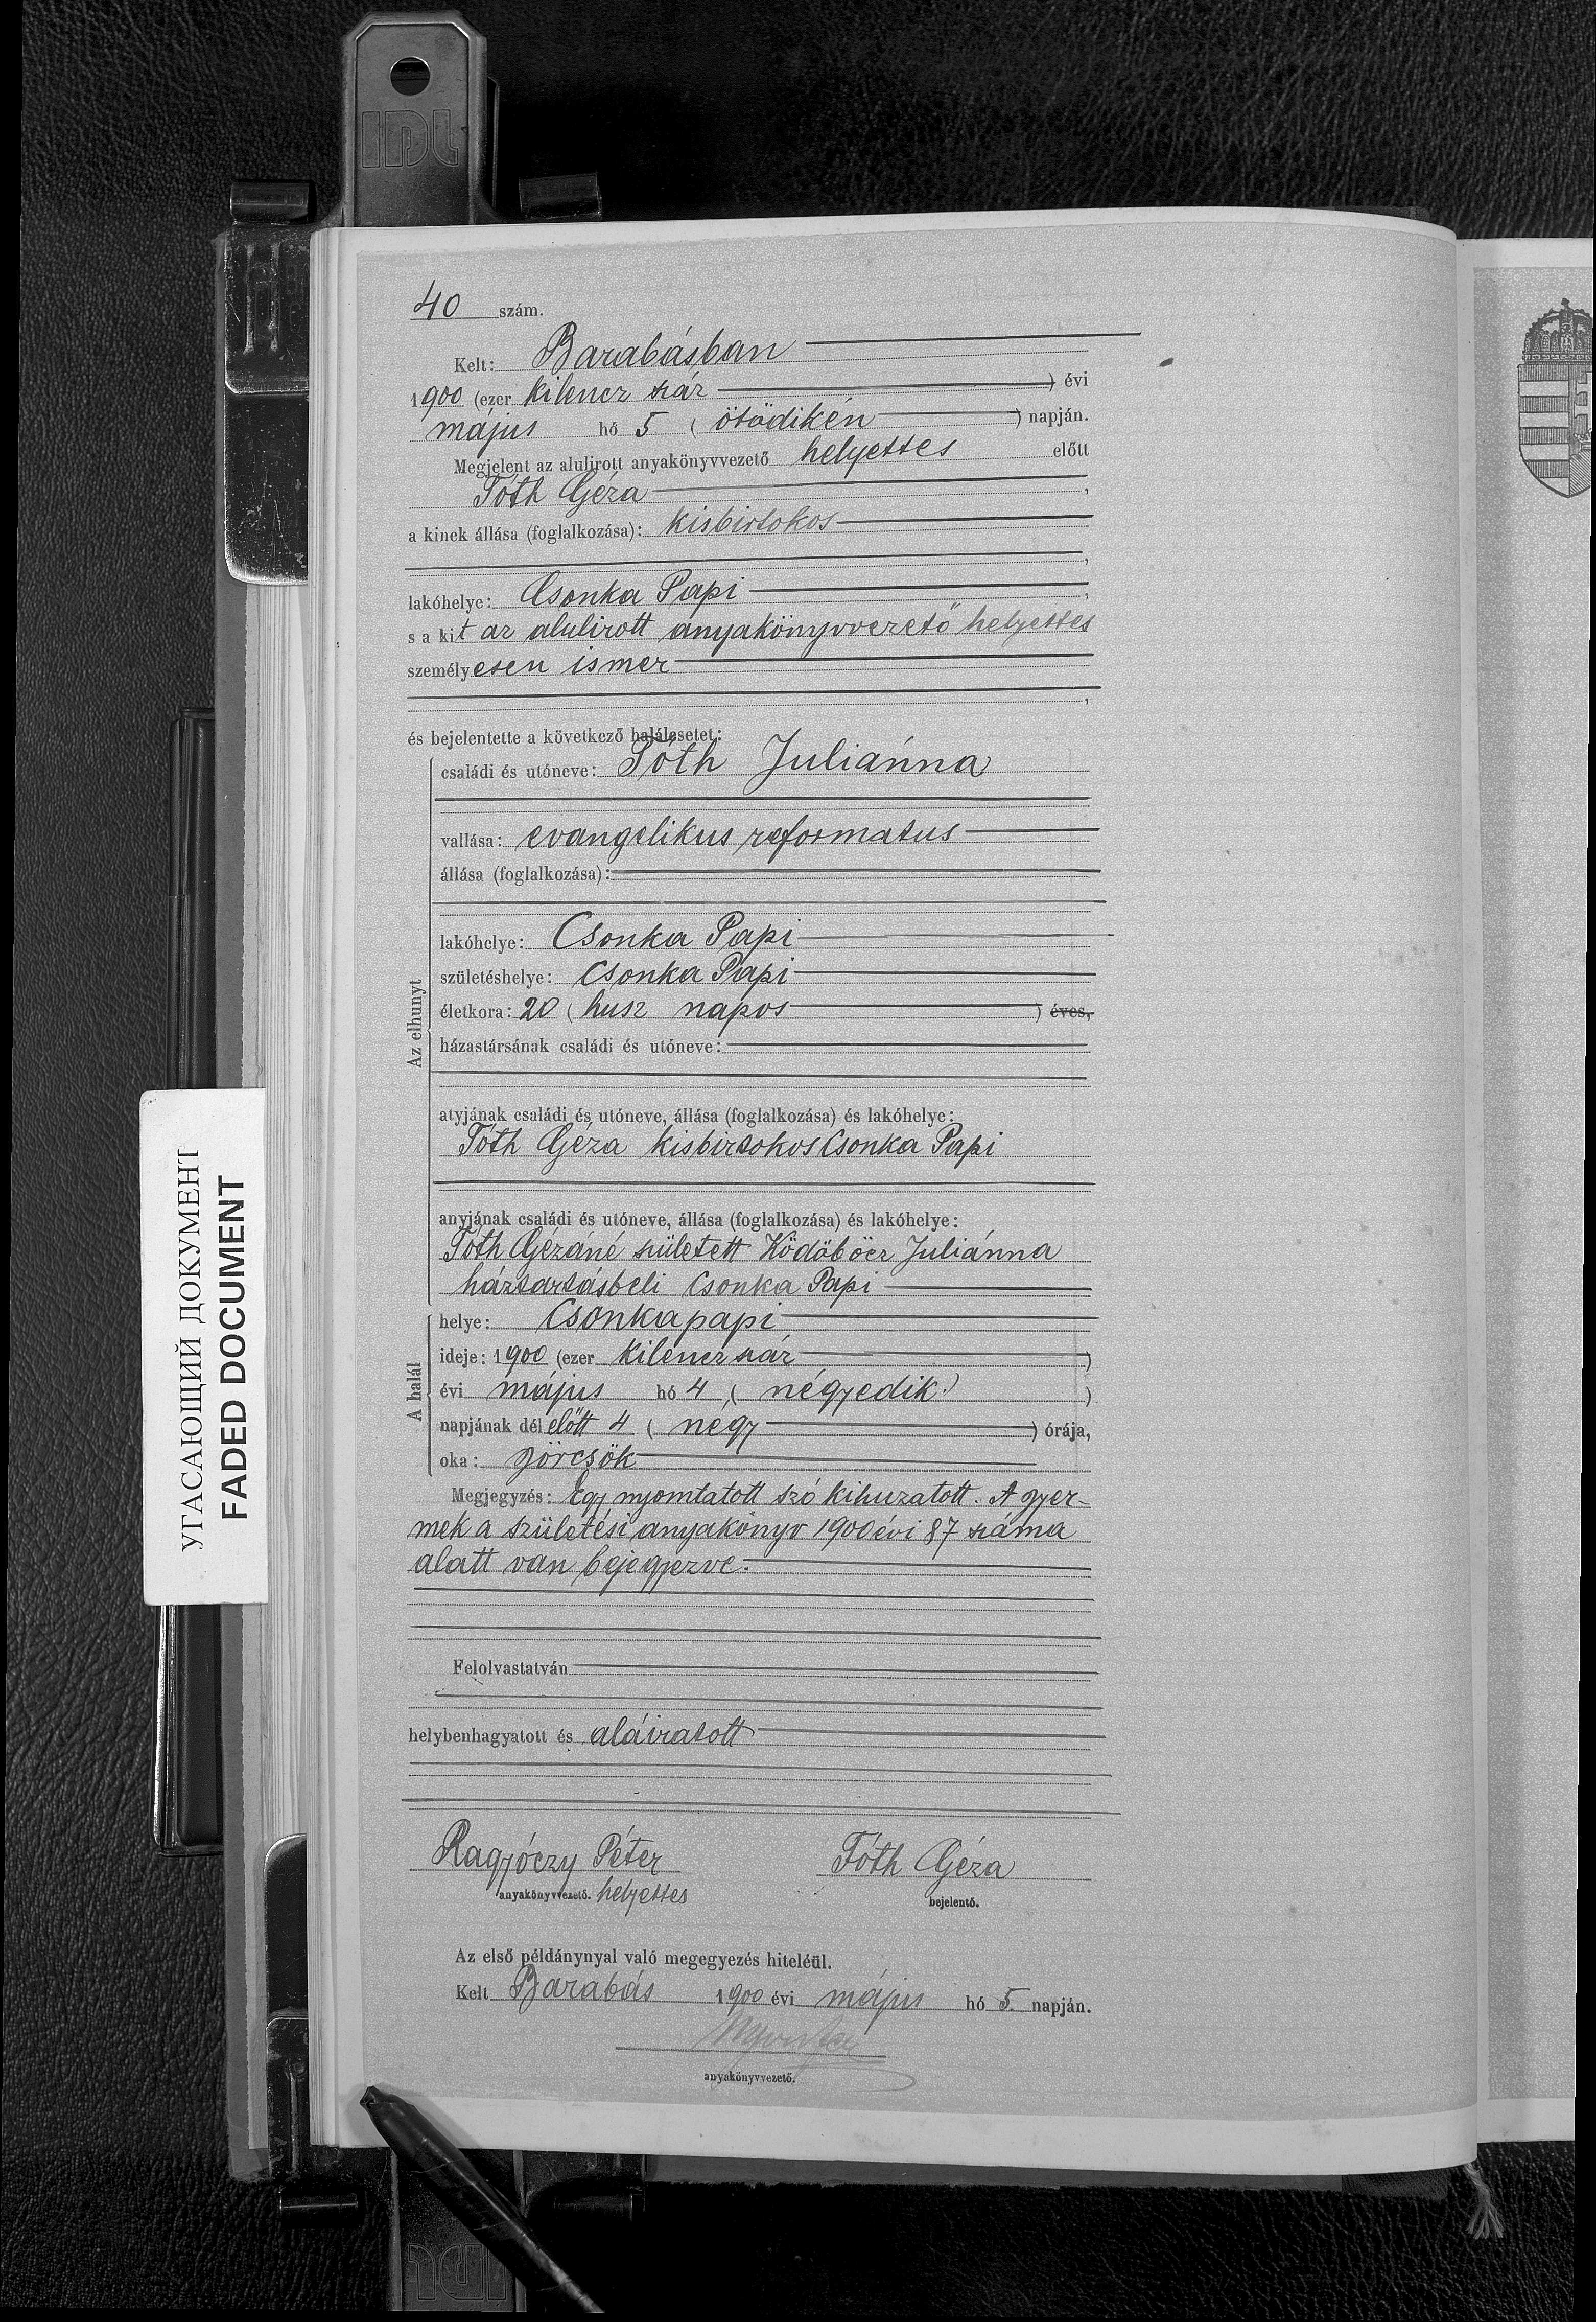 IDL
40 szám.
Kelt: Barabásban
1900 (ezer kilencz száz ) évi
május hó 5 ( ötödikén ) napján.
Megjelent az alulirott anyakönyvvezető helyettes előtt
Tóth Géza ,
a kinek állása (foglalkozása): kisbirtokos
,
lakóhelye: Csonka Papi ,
s a kit az alulirott anyakönyvvezető helyettes
személyesen ismer
,
és bejelentette a következő halálesetet:
Az elhunyt
családi és utóneve: Tóth Juliánna
vallása: evangelikus reformatus
állása (foglalkozása):
lakóhelye: Csonka Papi
születéshelye: Csonka Papi
életkora: 20 ( husz napos ) éves,
házastársának családi és utóneve:
atyjának családi és utóneve, állása (foglalkozása) és lakóhelye:
Tóth Géza kisbirtokos Csonka Papi
anyjának családi és utóneve, állása (foglalkozása) és lakóhelye:
Tóth Gézáné született Ködöböcz Juliánna
háztartásbeli Csonka Papi
A halál
helye: Csonkapapi
ideje: 1900 (ezer kilencz száz )
évi május hó 4 ( négyedik )
napjának dél előtt 4 ( négy ) órája,
oka: görcsök
Megjegyzés: Egy nyomtatott szó kihuzatott. A gyer-
mek a születési anyakönyv 1900 évi 87 száma
alatt van bejegyezve.
Felolvastatván
helybenhagyatott és aláiratott
Ragyóczy Péter Tóth Géza
anyakönyvvezető. helyettes bejelentő.
Az első példánynyal való megegyezés hiteléül.
Kelt Barabás 1900 évi május hó 5. napján.
anyakönyvvezető.
УГАСАЮЩИЙ ДОКУМЕНТ
FADED DOCUMENT
IDL